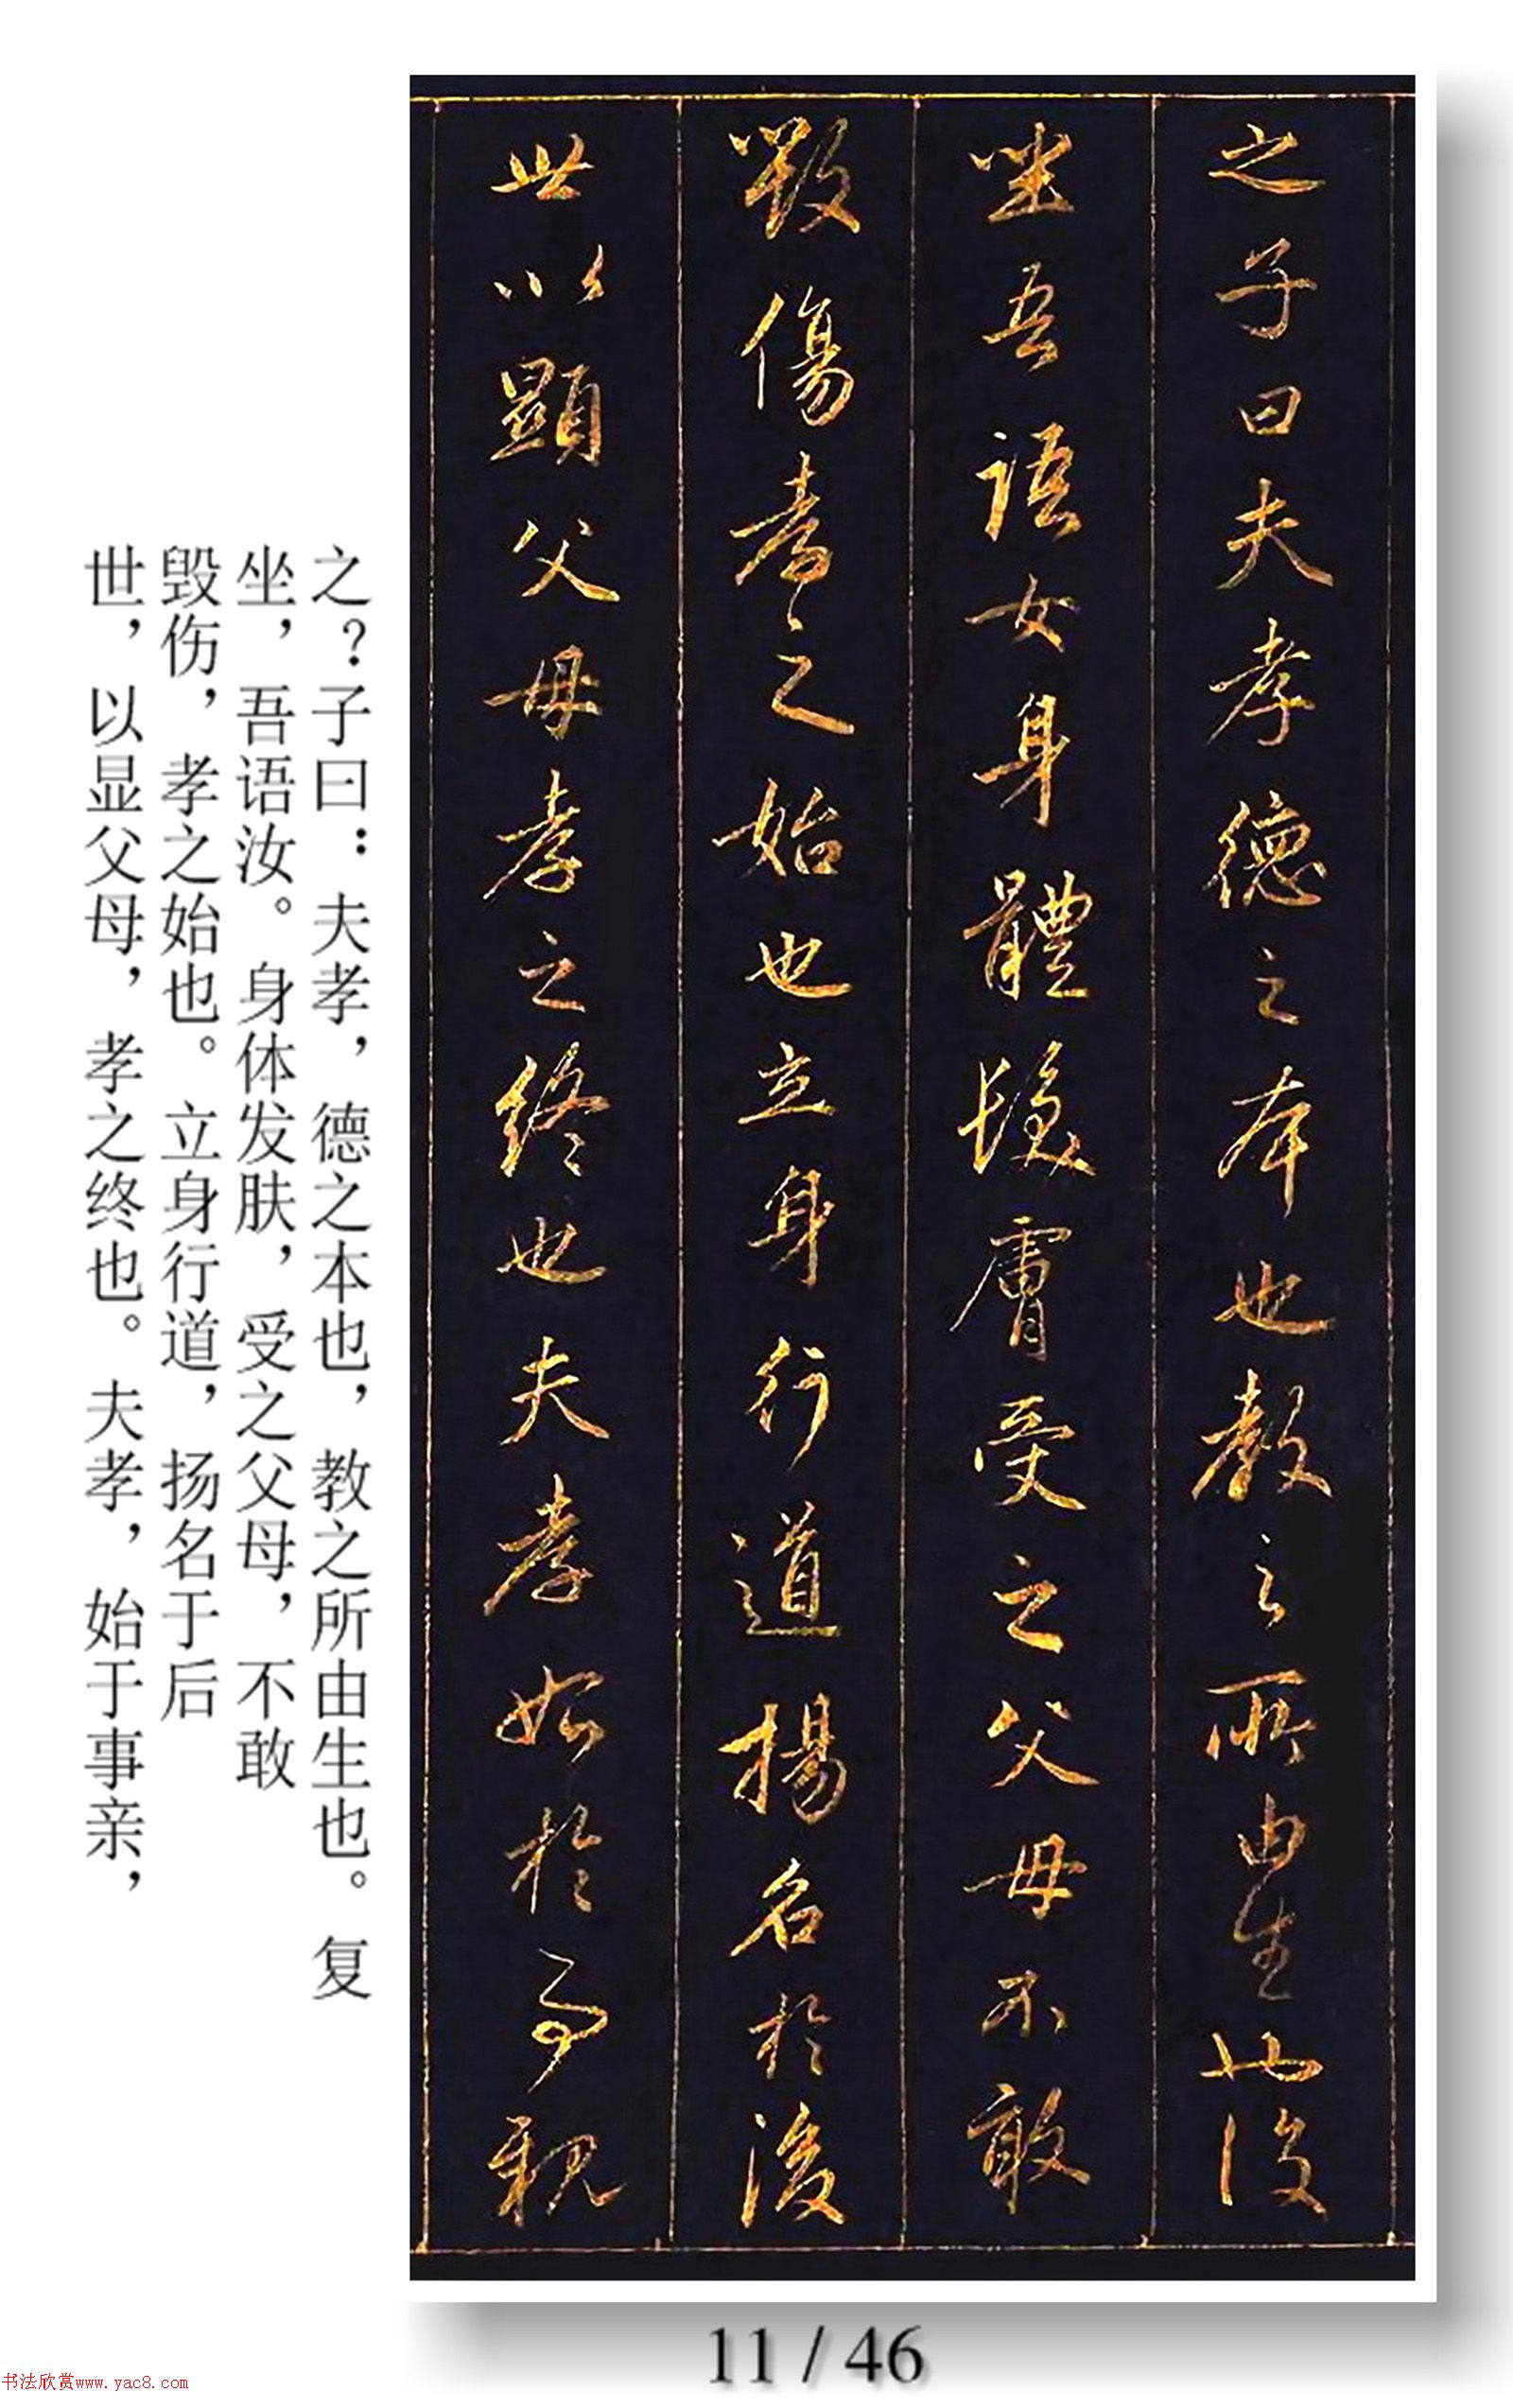 之子曰夫孝德之本也教之所由生也復
坐吾語女身體髮膚受之父母不敢
毀傷孝之始也立身行道揚名於後
世以顯父母孝之終也夫孝始於事親
之？子曰：夫孝，德之本也，教之所由生也。复
坐，吾语汝。身体发肤，受之父母，不敢
毁伤，孝之始也。立身行道，扬名于后
世，以显父母，孝之终也。夫孝，始于事亲，
11 / 46
书法欣赏www.yac8.com